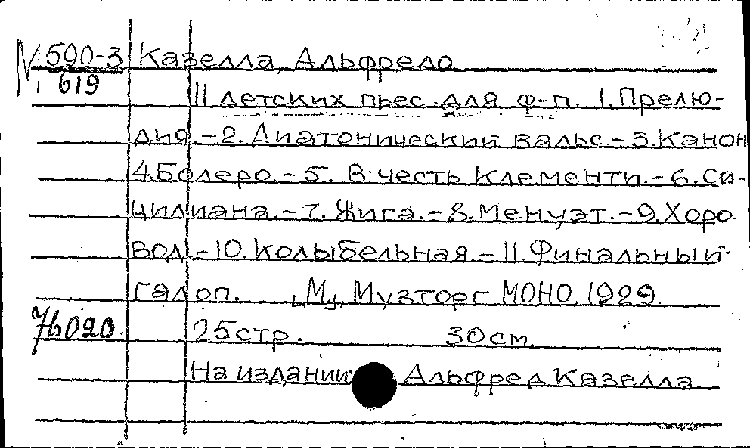 N 590-3 Казелла, Альфредо
619
11 детских пьес для ф-п. 1. Прелю-
дия. - 2. Диатонический вальс - 3. Канон
4. Болеро - 5. В честь Клементи. - 6. Си-
цилиана. - 7. Жига. - 8. Менуэт. - 9. Хоро
вод. - 10. Колыбельная. - 11. Финальный
галоп. [М] Музторг МОНО, 1929.
76020 25 стр. 30 см
На издании Альфред Казелла